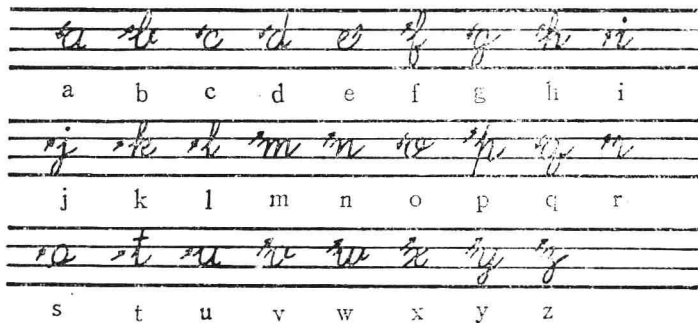 a b c d e f g h i
a b c d e f g h i
j k l m n o p q r
j k l m n o p q r
s t u v w x y z
s t u v w x y z